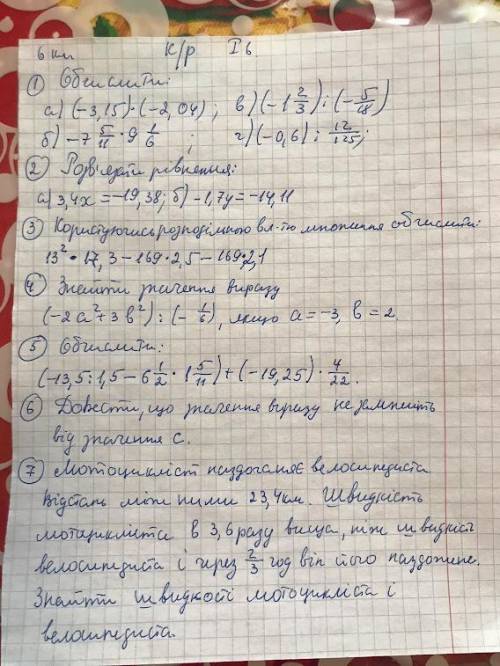 6 кл к/р I в.
① Обчислити:
а) (-3,15)·(-2,04); в) (-1 2/3) : (-5/18)
б) -7 5/11 · 9 1/6 ; г) (-0,6) : 12/125;
② Розв'язати рівняння:
а) 3,4x = -19,38; б) -1,7y = -14,11
③ Користуючись розподільною вл-тю множення обчислити:
13² · 17,3 - 169 · 2,5 - 169 · 2,1
④ Знайти значення виразу
(-2a² + 3b²) : (-1/6), якщо a = -3, b = 2.
⑤ Обчислити:
(-13,5 : 1,5 - 6 1/2 · 1 5/11) + (-19,25) · 4/22.
⑥ Довести, що значення виразу не залежить
від значення c.
⑦ Мотоцикліст наздоганяє велосипедиста
Відстань між ними 23,4км. Швидкість
мотоцикліста в 3,6 разу вища, ніж швидкість
велосипедиста і через 2/3 год він його наздожене.
Знайти швидкості мотоцикліста і
велосипедиста.